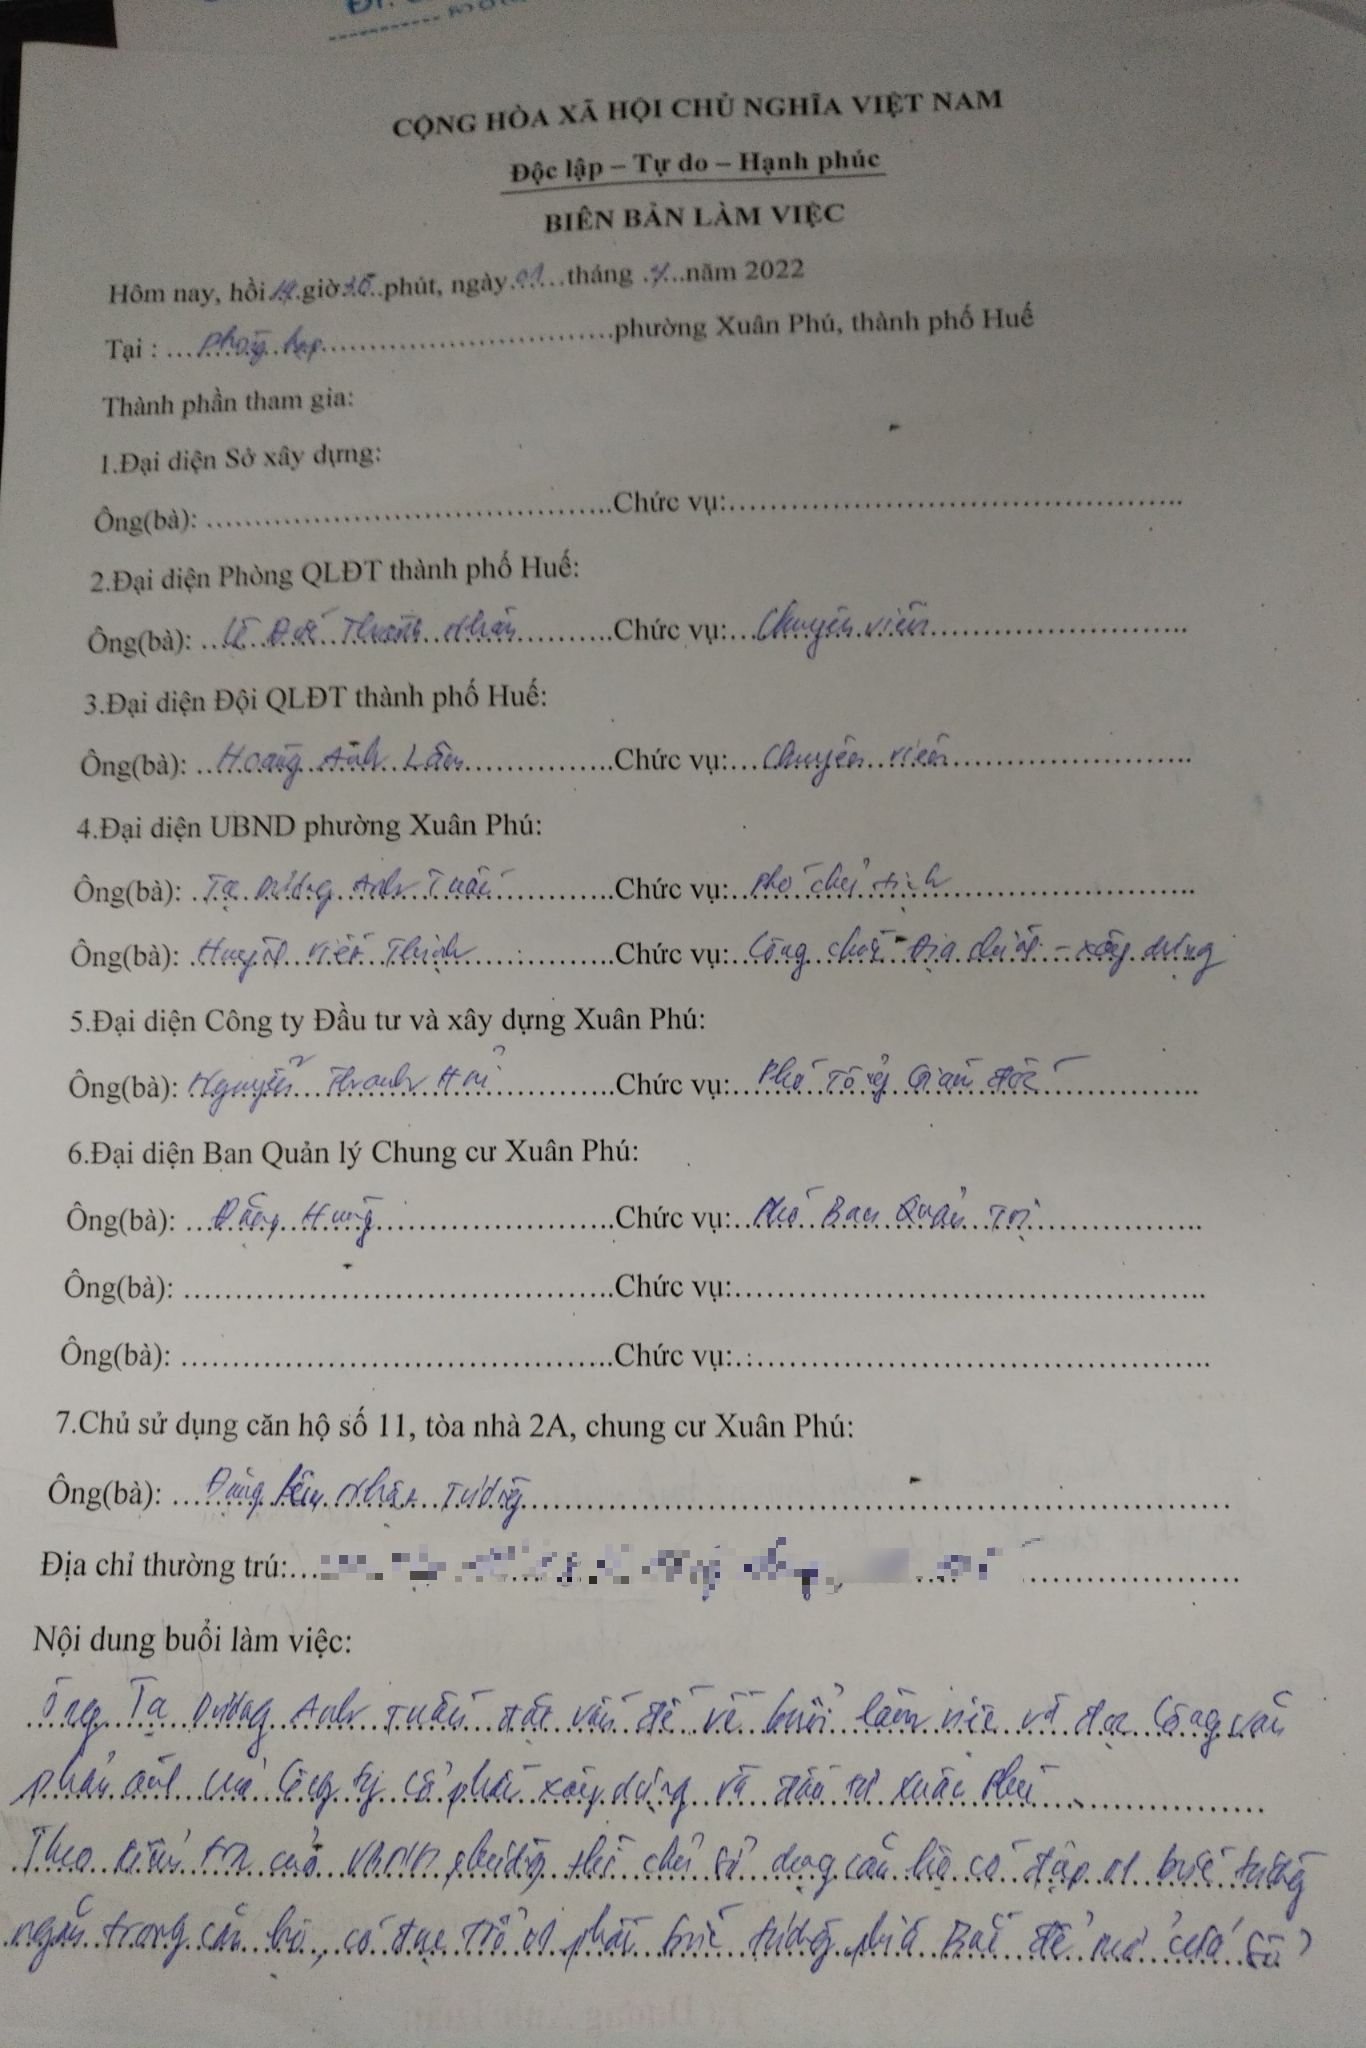 CỘNG HÒA XÃ HỘI CHỦ NGHĨA VIỆT NAM
Độc lập – Tự do – Hạnh phúc
BIÊN BẢN LÀM VIỆC
Hôm nay, hồi 14 giờ phút, ngày 01 tháng năm 2022
Tại : Phòng họp phường Xuân Phú, thành phố Huế
Thành phần tham gia:
1.Đại diện Sở xây dựng:
Ông(bà): Chức vụ:
2.Đại diện Phòng QLĐT thành phố Huế:
Ông(bà): Lê Thành Nhân Chức vụ: Chuyên viên
3.Đại diện Đội QLĐT thành phố Huế:
Ông(bà): Hoàng Anh Lâm Chức vụ: Chuyên viên
4.Đại diện UBND phường Xuân Phú:
Ông(bà): Tạ Dương Anh Tuấn Chức vụ: Phó chủ tịch
Ông(bà): Huỳnh Viết Thịnh Chức vụ: Công chức Địa chính - xây dựng
5.Đại diện Công ty Đầu tư và xây dựng Xuân Phú:
Ông(bà): Nguyễn Thanh Hải Chức vụ: Phó Tổng Giám đốc
6.Đại diện Ban Quản lý Chung cư Xuân Phú:
Ông(bà): Đặng Hưng Chức vụ: Phó Ban Quản Trị
Ông(bà): Chức vụ:
Ông(bà): Chức vụ:
7.Chủ sử dụng căn hộ số 11, tòa nhà 2A, chung cư Xuân Phú:
Ông(bà): Đặng Nhật Tường
Địa chỉ thường trú:
Nội dung buổi làm việc:
Ông Tạ Dương Anh Tuấn đặt vấn đề về buổi làm việc và đọc Công văn
phản ánh của Công ty cổ phần xây dựng và đầu tư Xuân Phú
Theo kiểm tra của UBND phường thì chủ sử dụng căn hộ có đập 01 bức tường
ngăn trong căn hộ, có đục trổ 01 phần bức tường phía Bắc để mở cửa sổ